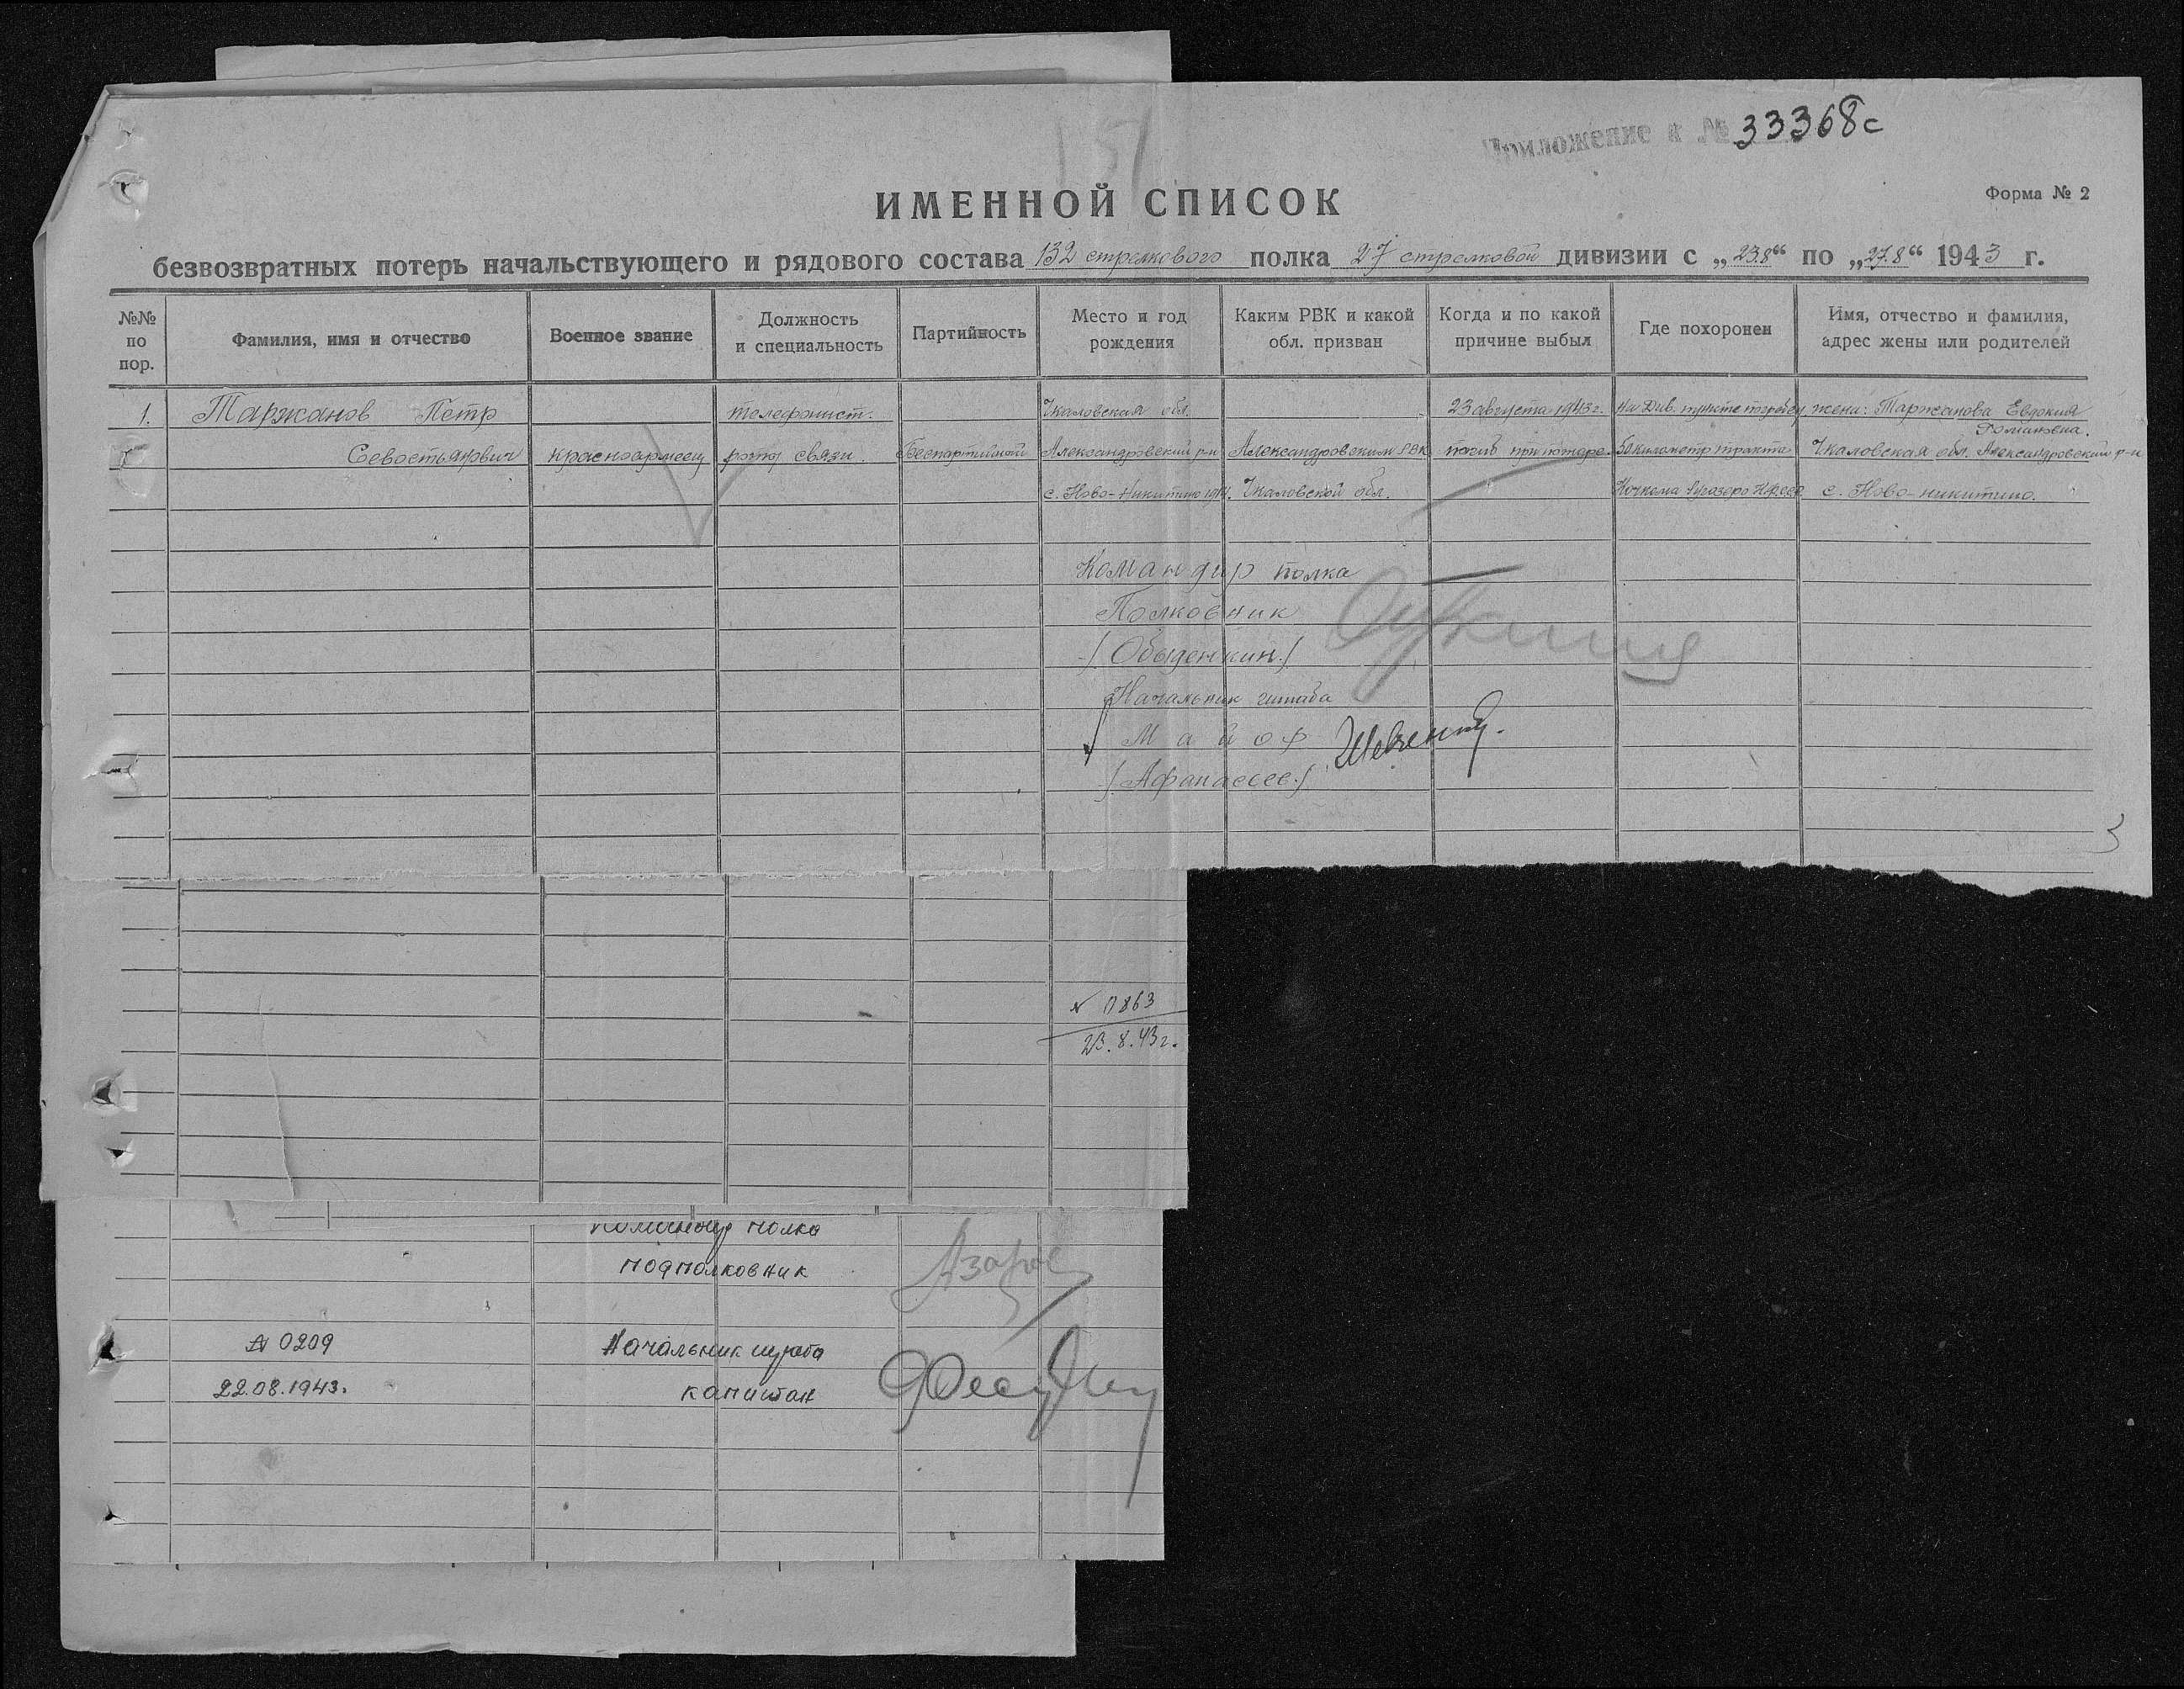 151
Приложение к № 33368с
ИМЕННОЙ СПИСОК
Форма № 2
безвозвратных потерь начальствующего и рядового состава 132 стрелкового полка 27 стрелковой дивизии с „23.8“ по „27.8“ 1943 г.
№№ по пор.
Фамилия, имя и отчество
Военное звание
Должность и специальность
Партийность
Место и год рождения
Каким РВК и какой обл. призван
Когда и по какой причине выбыл
Где похоронен
Имя, отчество и фамилия, адрес жены или родителей
1. Таржанов Петр телефонист. Чкаловская обл. 23 августа 1943 г. на Див. пункте жена: Таржанова Евдокия
Романовна.
Севостьянович красноармеец роты связи. Беспартийный Александровский р-н Александровским РВК погиб при пожаре. 50 километр тракта Чкаловская обл. Александровский р-н
с. Ново-Никитино Чкаловской обл. Кочкома Ругозеро с. Ново-никитино.
Командир полка
Полковник
/Обыденкин/
Начальник штаба
Майор
/Афанасьев/
3
№ 0863
23.8.43г.
Командир полка
подполковник
Азаров
№ 0209 Начальник штаба
22.08.1943. капитан